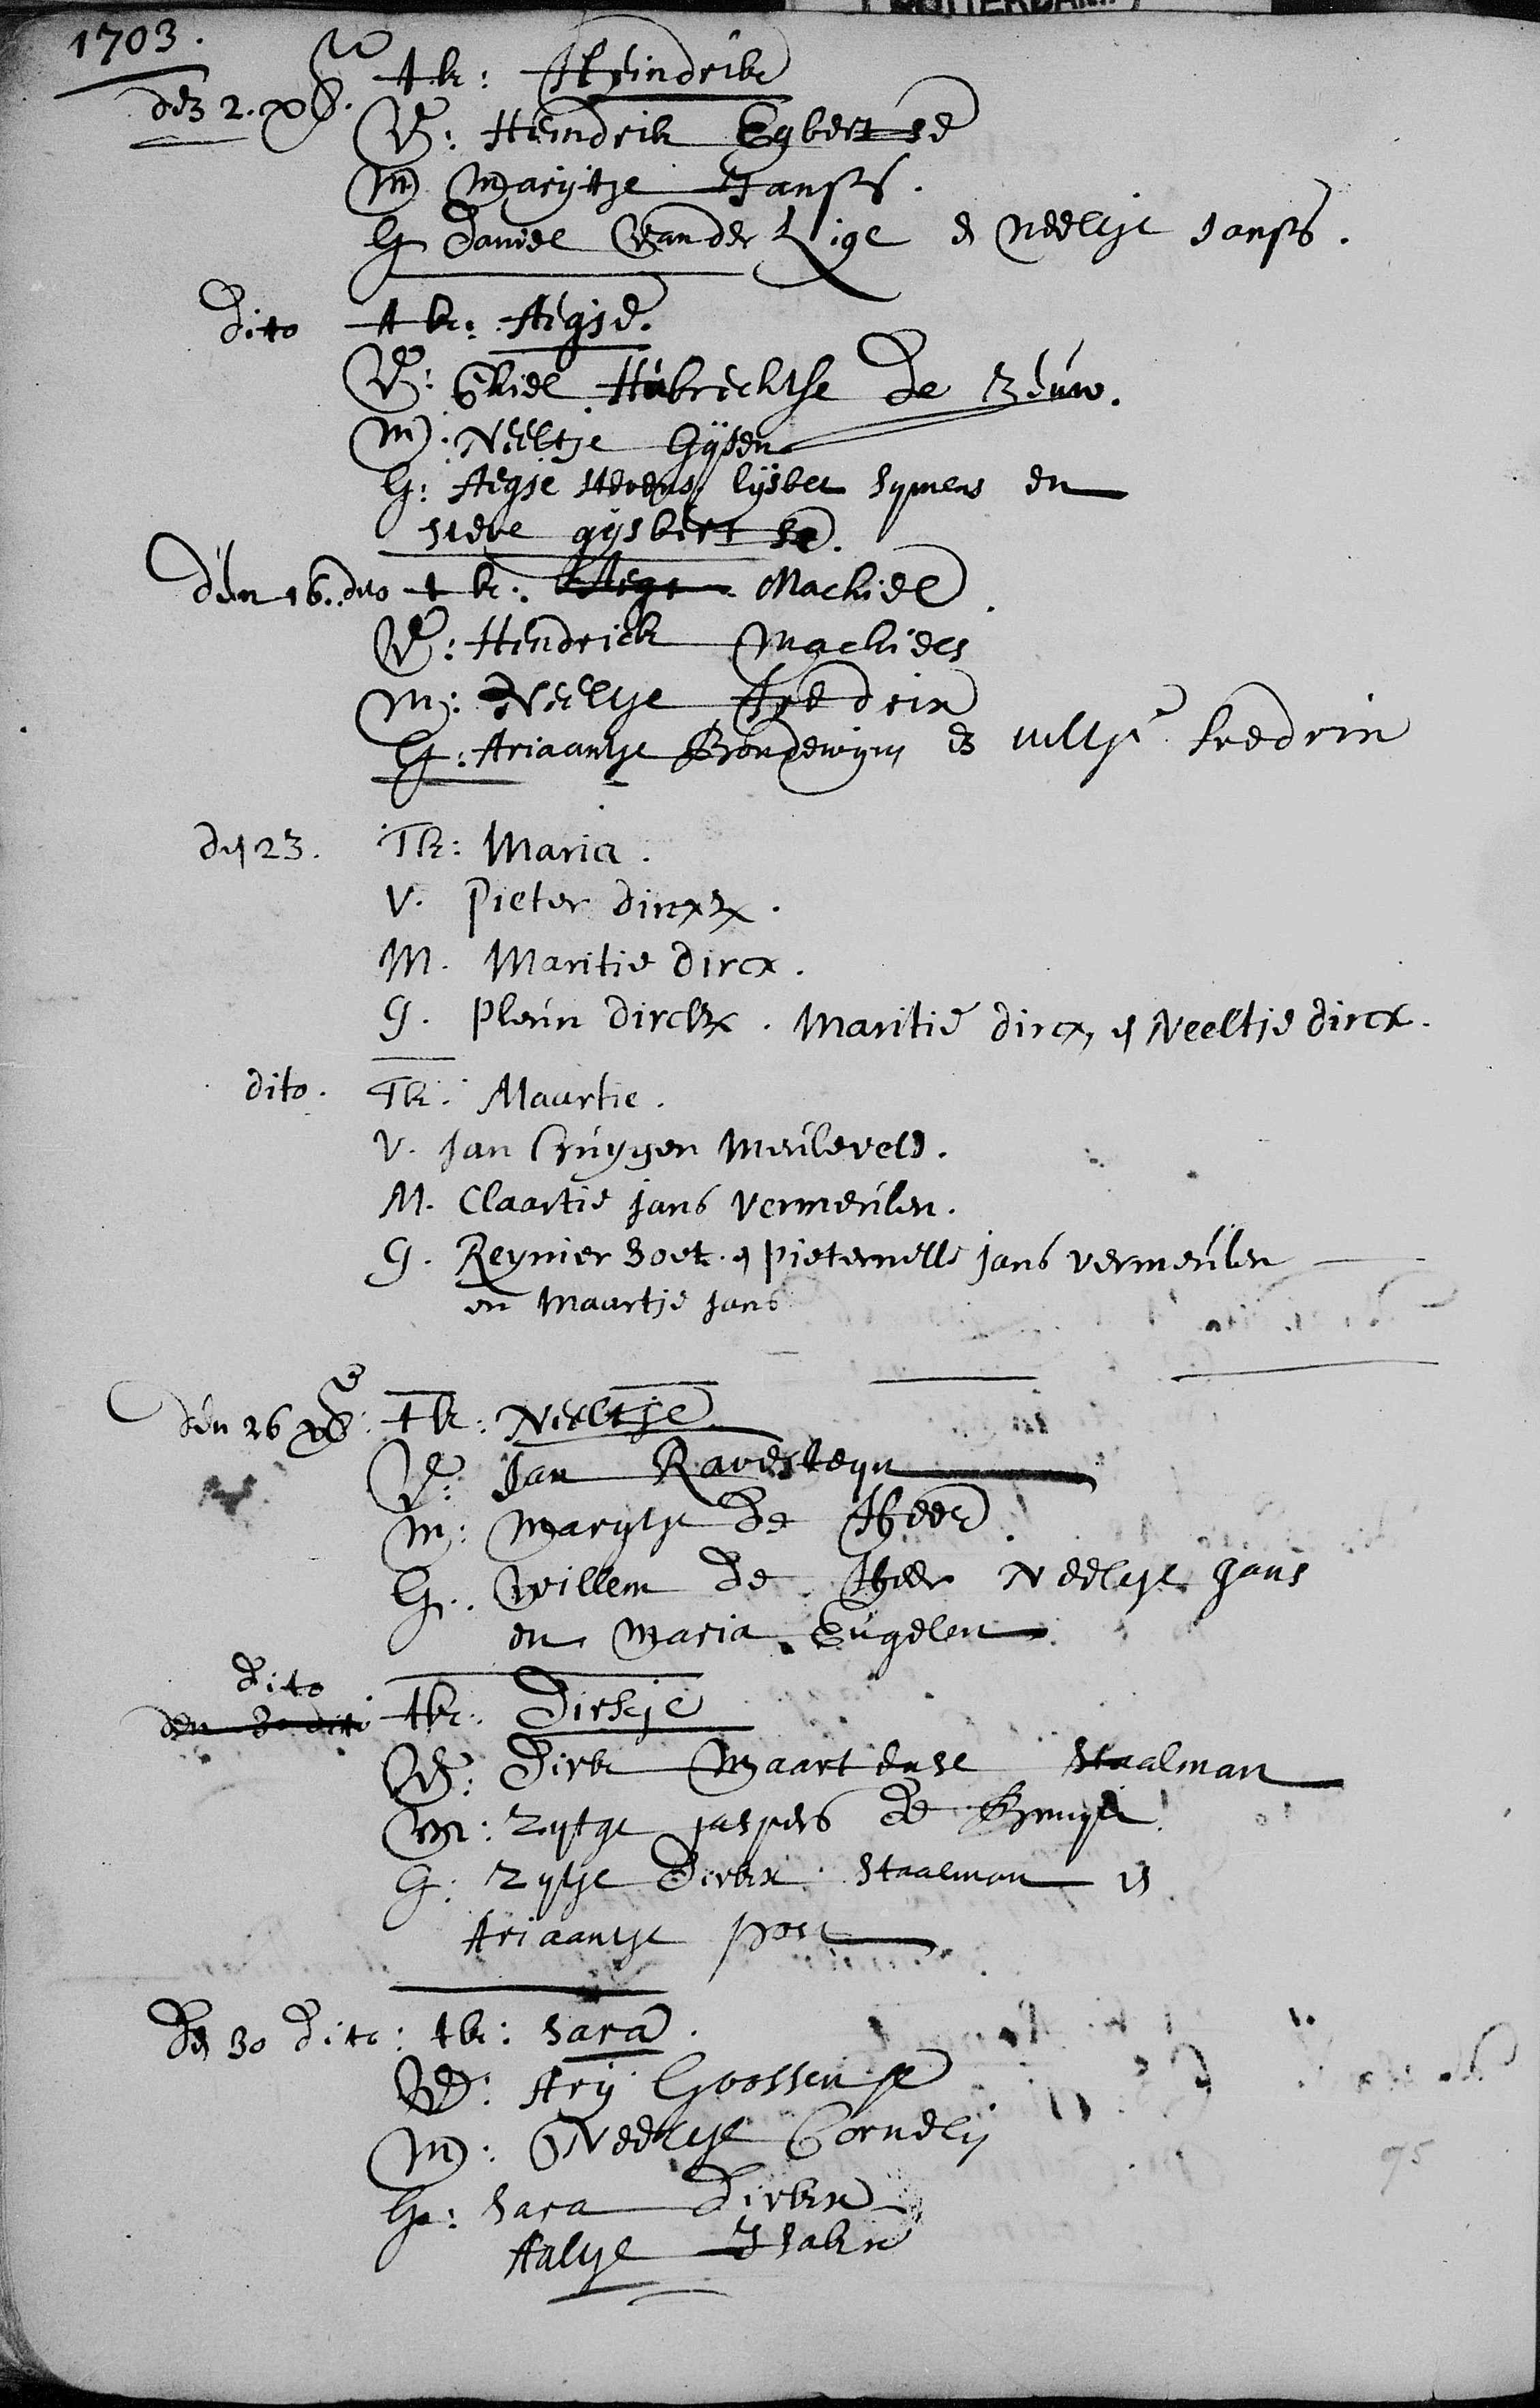 ROTTERDAM
1703.
den 2. xbr. tk: Heindrik
V: Hendrik Egbertse
M Marijtje Jansts.
G Daniel van der Lige en Neeltje Jansts.
dito tk: Aegje.
V: Chiel Hubrechtse De Zeuw.
M: Neeltje Gijsen
G: Aegje Stevens, Lijsbet Symens en
Steve gijsbertse.
den 16. dito tk: Machiel.
V: Hendrick Machiels
M: Neeltje Fredrix
G: Ariaantje Boudewijns en Fredrix
den 23. Tk: Maria.
V. Pieter dircxz.
M. Maritie dircx.
G. Pleun dirckz. Maritie dircx, en Neeltje dircx.
dito. Tk: Maartie.
V. Jan Cruijgen Meuleveld.
M. Claartie jans Vermeulen.
G. Reynier Soet. en pieternelle jans vermeulen
en Maartje jans
den 26 xbr: tk: Neeltje
V: Jan Ravesteyn
M: Marytje de Heer
G: Willem de Heer Neeltje Jans
en Maria Eugelen
dito
den 30 dito tk: Dirkje
V: Dirk Maartense Staalman
M: Zytge jaspers de Bruijn
G: Zytje Dirkx Staalman en
Ariaantje post
Den 30 dito: tk: Sara.
V: Arij Goossense
M: Neeltje Cornelij
G: Sara Dirkx
Aaltje Isakx